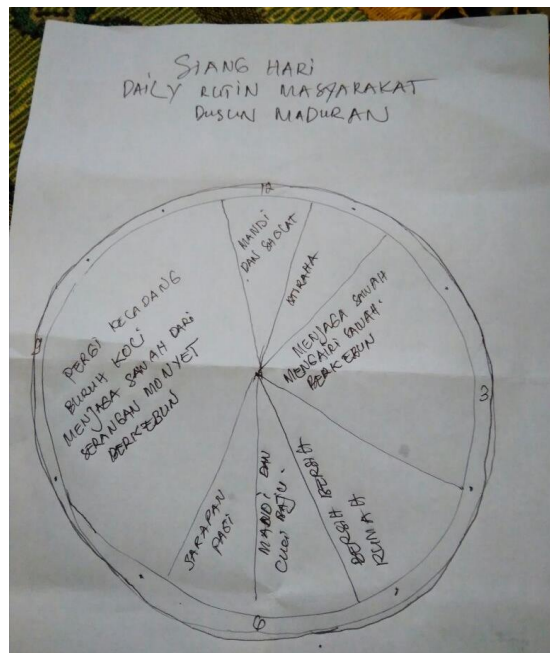 SIANG HARI
DAILY RUTIN MASYARAKAT
DUSUN MADURAN
12
MANDI
DAN SHOLAT
ISTIRAHA
MENJAGA SAWAH
MENGAIRI SAWAH.
BERKEBUN
3
BERSIH BERSIH
RUMAH
MANDI DAN
CUCI BAJU.
6
SARAPAN
PAGI
9
PERGI KELADANG
BURUH KOCI
MENJAGA SAWAH DARI
SERANGAN MONYET
BERKEBUN